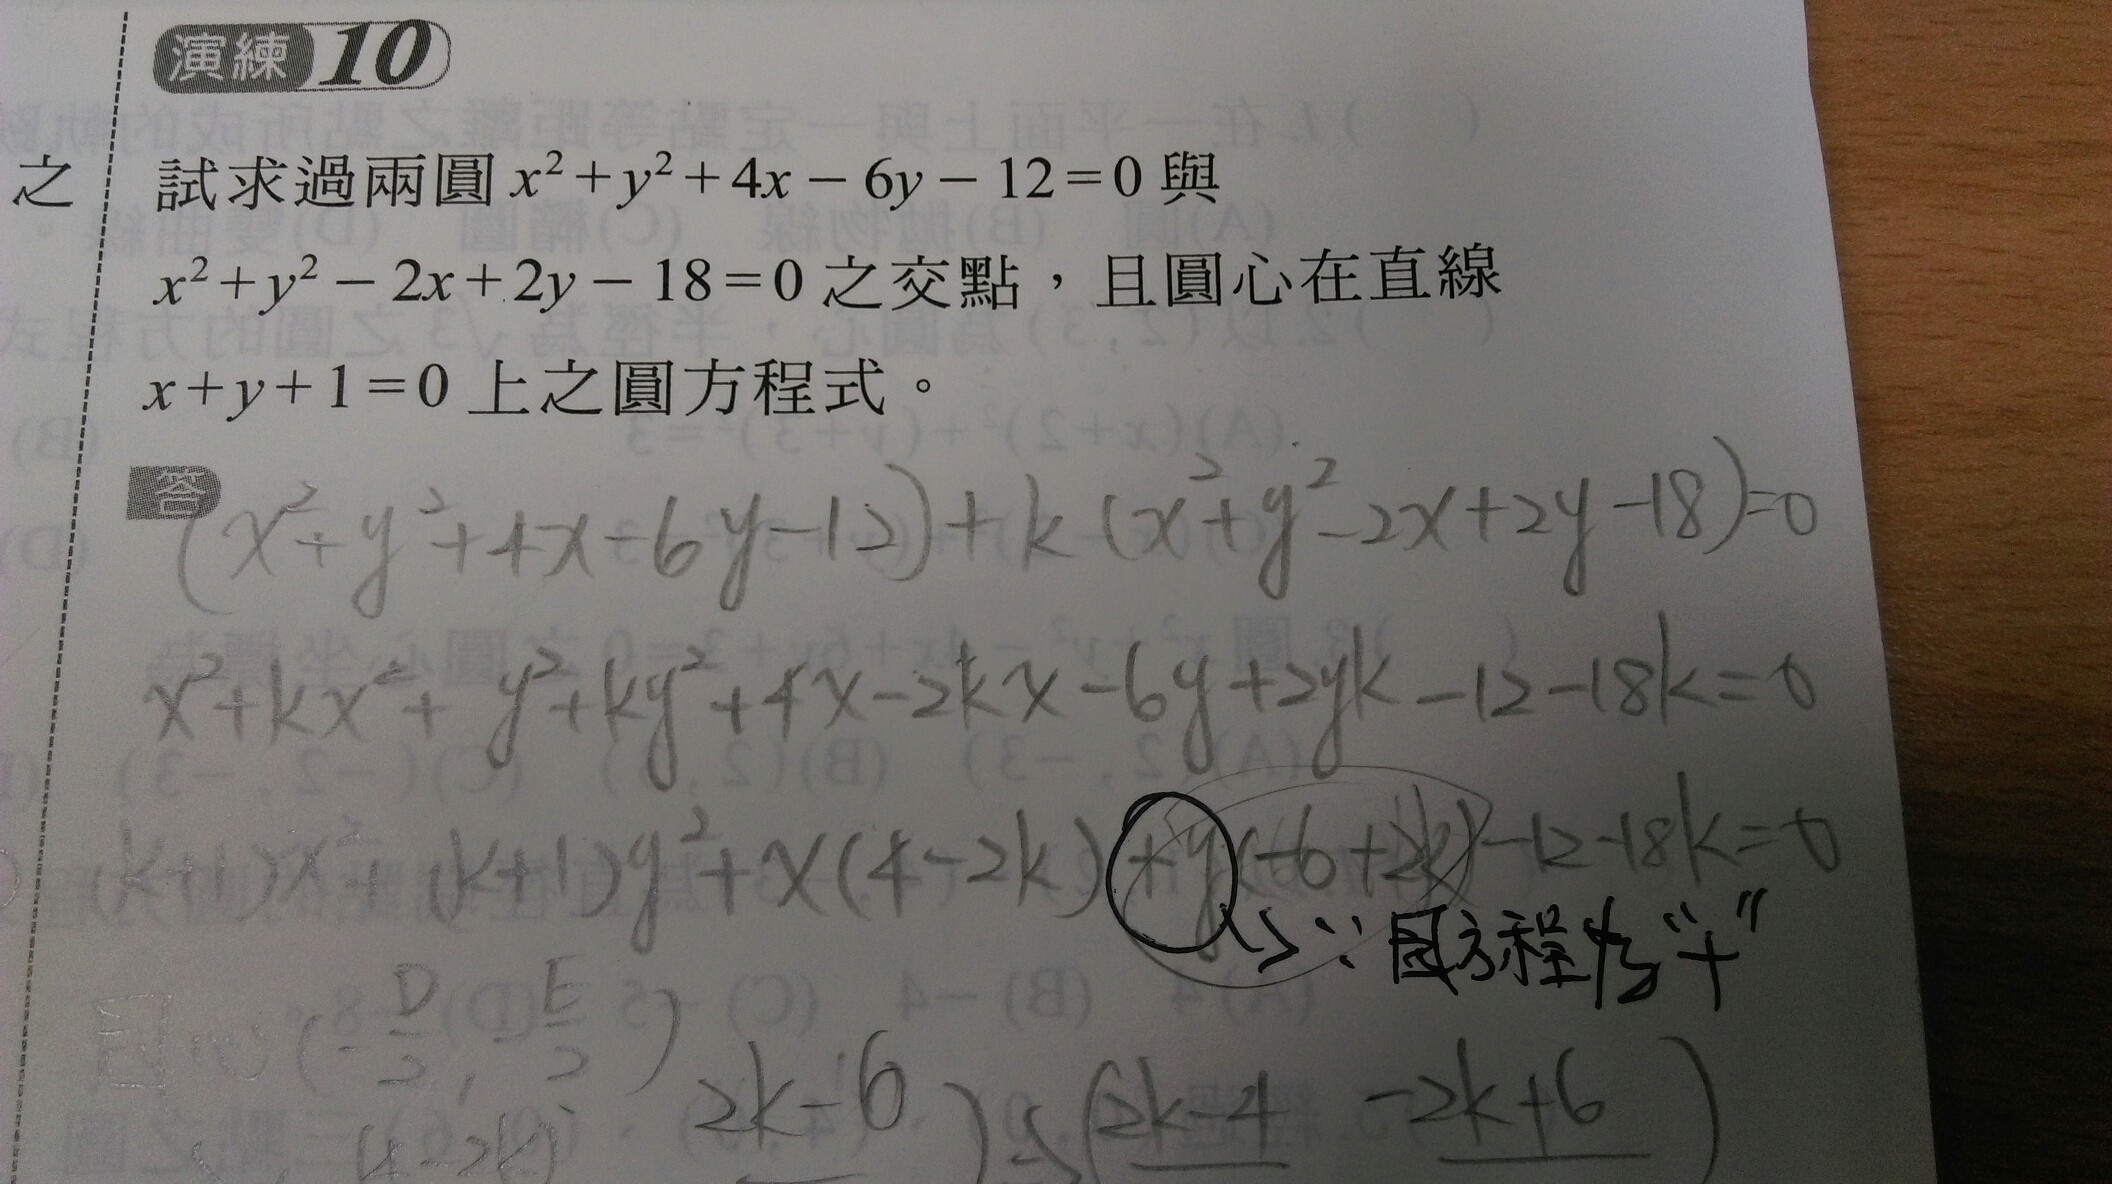 演練 10
之
試求過兩圓 x²+y²+4x－6y－12=0 與
x²+y²－2x+2y－18=0 之交點，且圓心在直線
x+y+1=0 上之圓方程式。
答
(x²+y²+4x-6y-12)+k(x²+y²-2x+2y-18)=0
x²+kx²+y²+ky²+4x-2kx-6y+2yk-12-18k=0
(k+1)x²+(k+1)y²+x(4-2k)+y(-6+2k)-12-18k=0
→∵圓方程為“+”
圓心(-D/2, -E/2)
(4-2k) 2k-6 ) ⇒ (2k-4 -2k+6 )